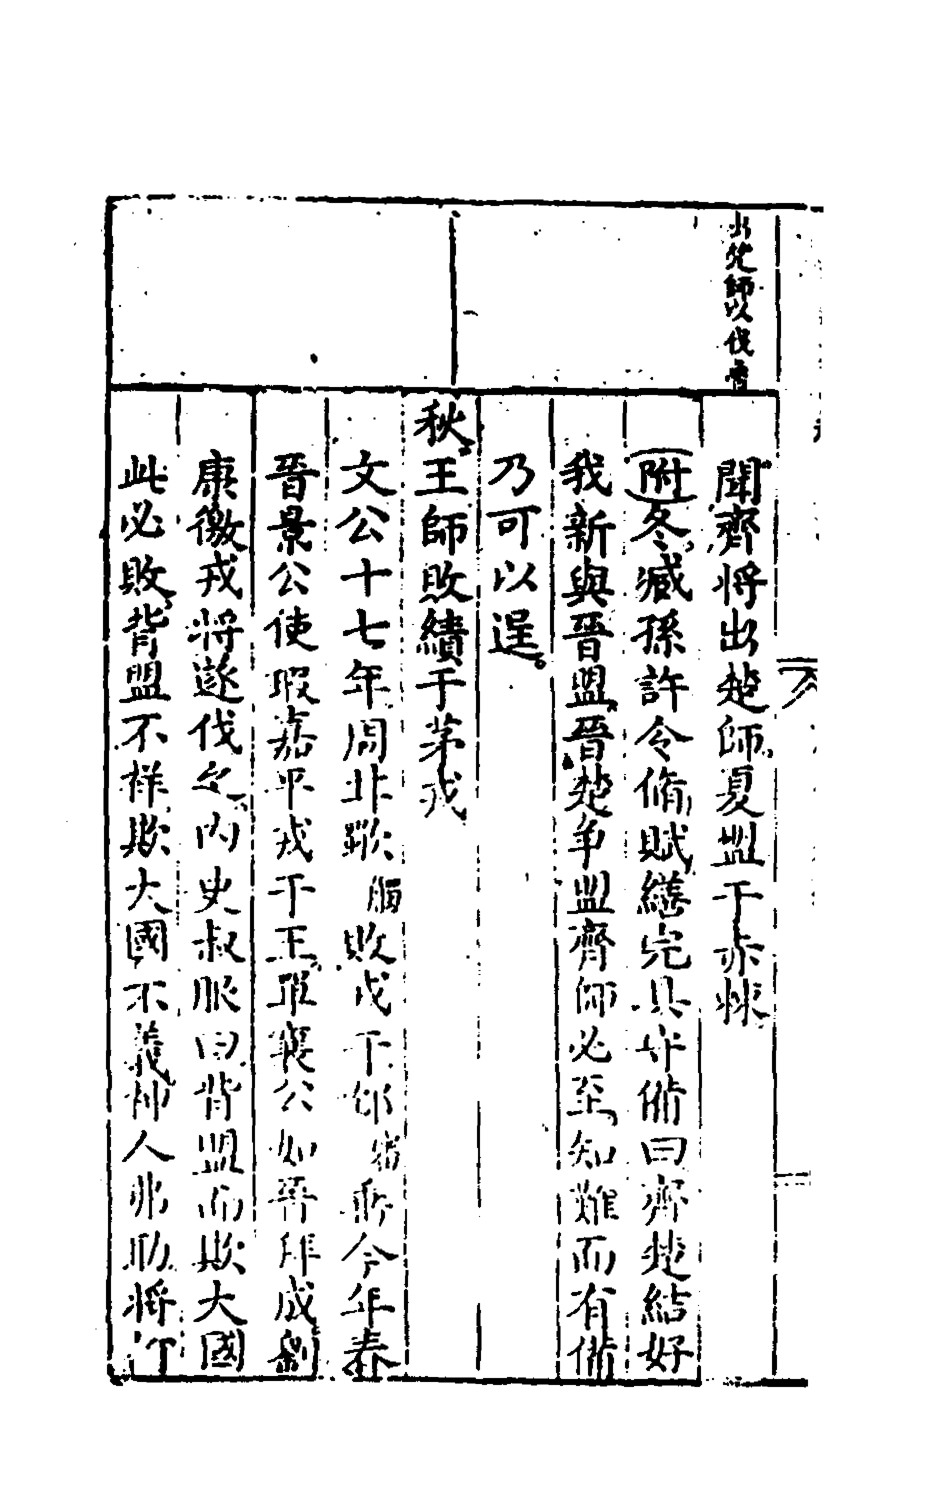 出楚師以伐魯
聞齊將出楚師夏盟于赤棘
附冬臧孫許令脩賦繕完具守備曰齊楚結好
我新與晉盟晉楚争盟齊師必至知難而有備
乃可以逞
秋王師敗績于茅戎
文公十七年周甘歜觸敗戎于邥審垂今年春
晉景公使瑕嘉平戎于王單襄公如晉拜成劉
康徼戎將遂伐之内史叔服曰背盟而欺大國
此必敗背盟不祥欺大國不義神人弗助將何